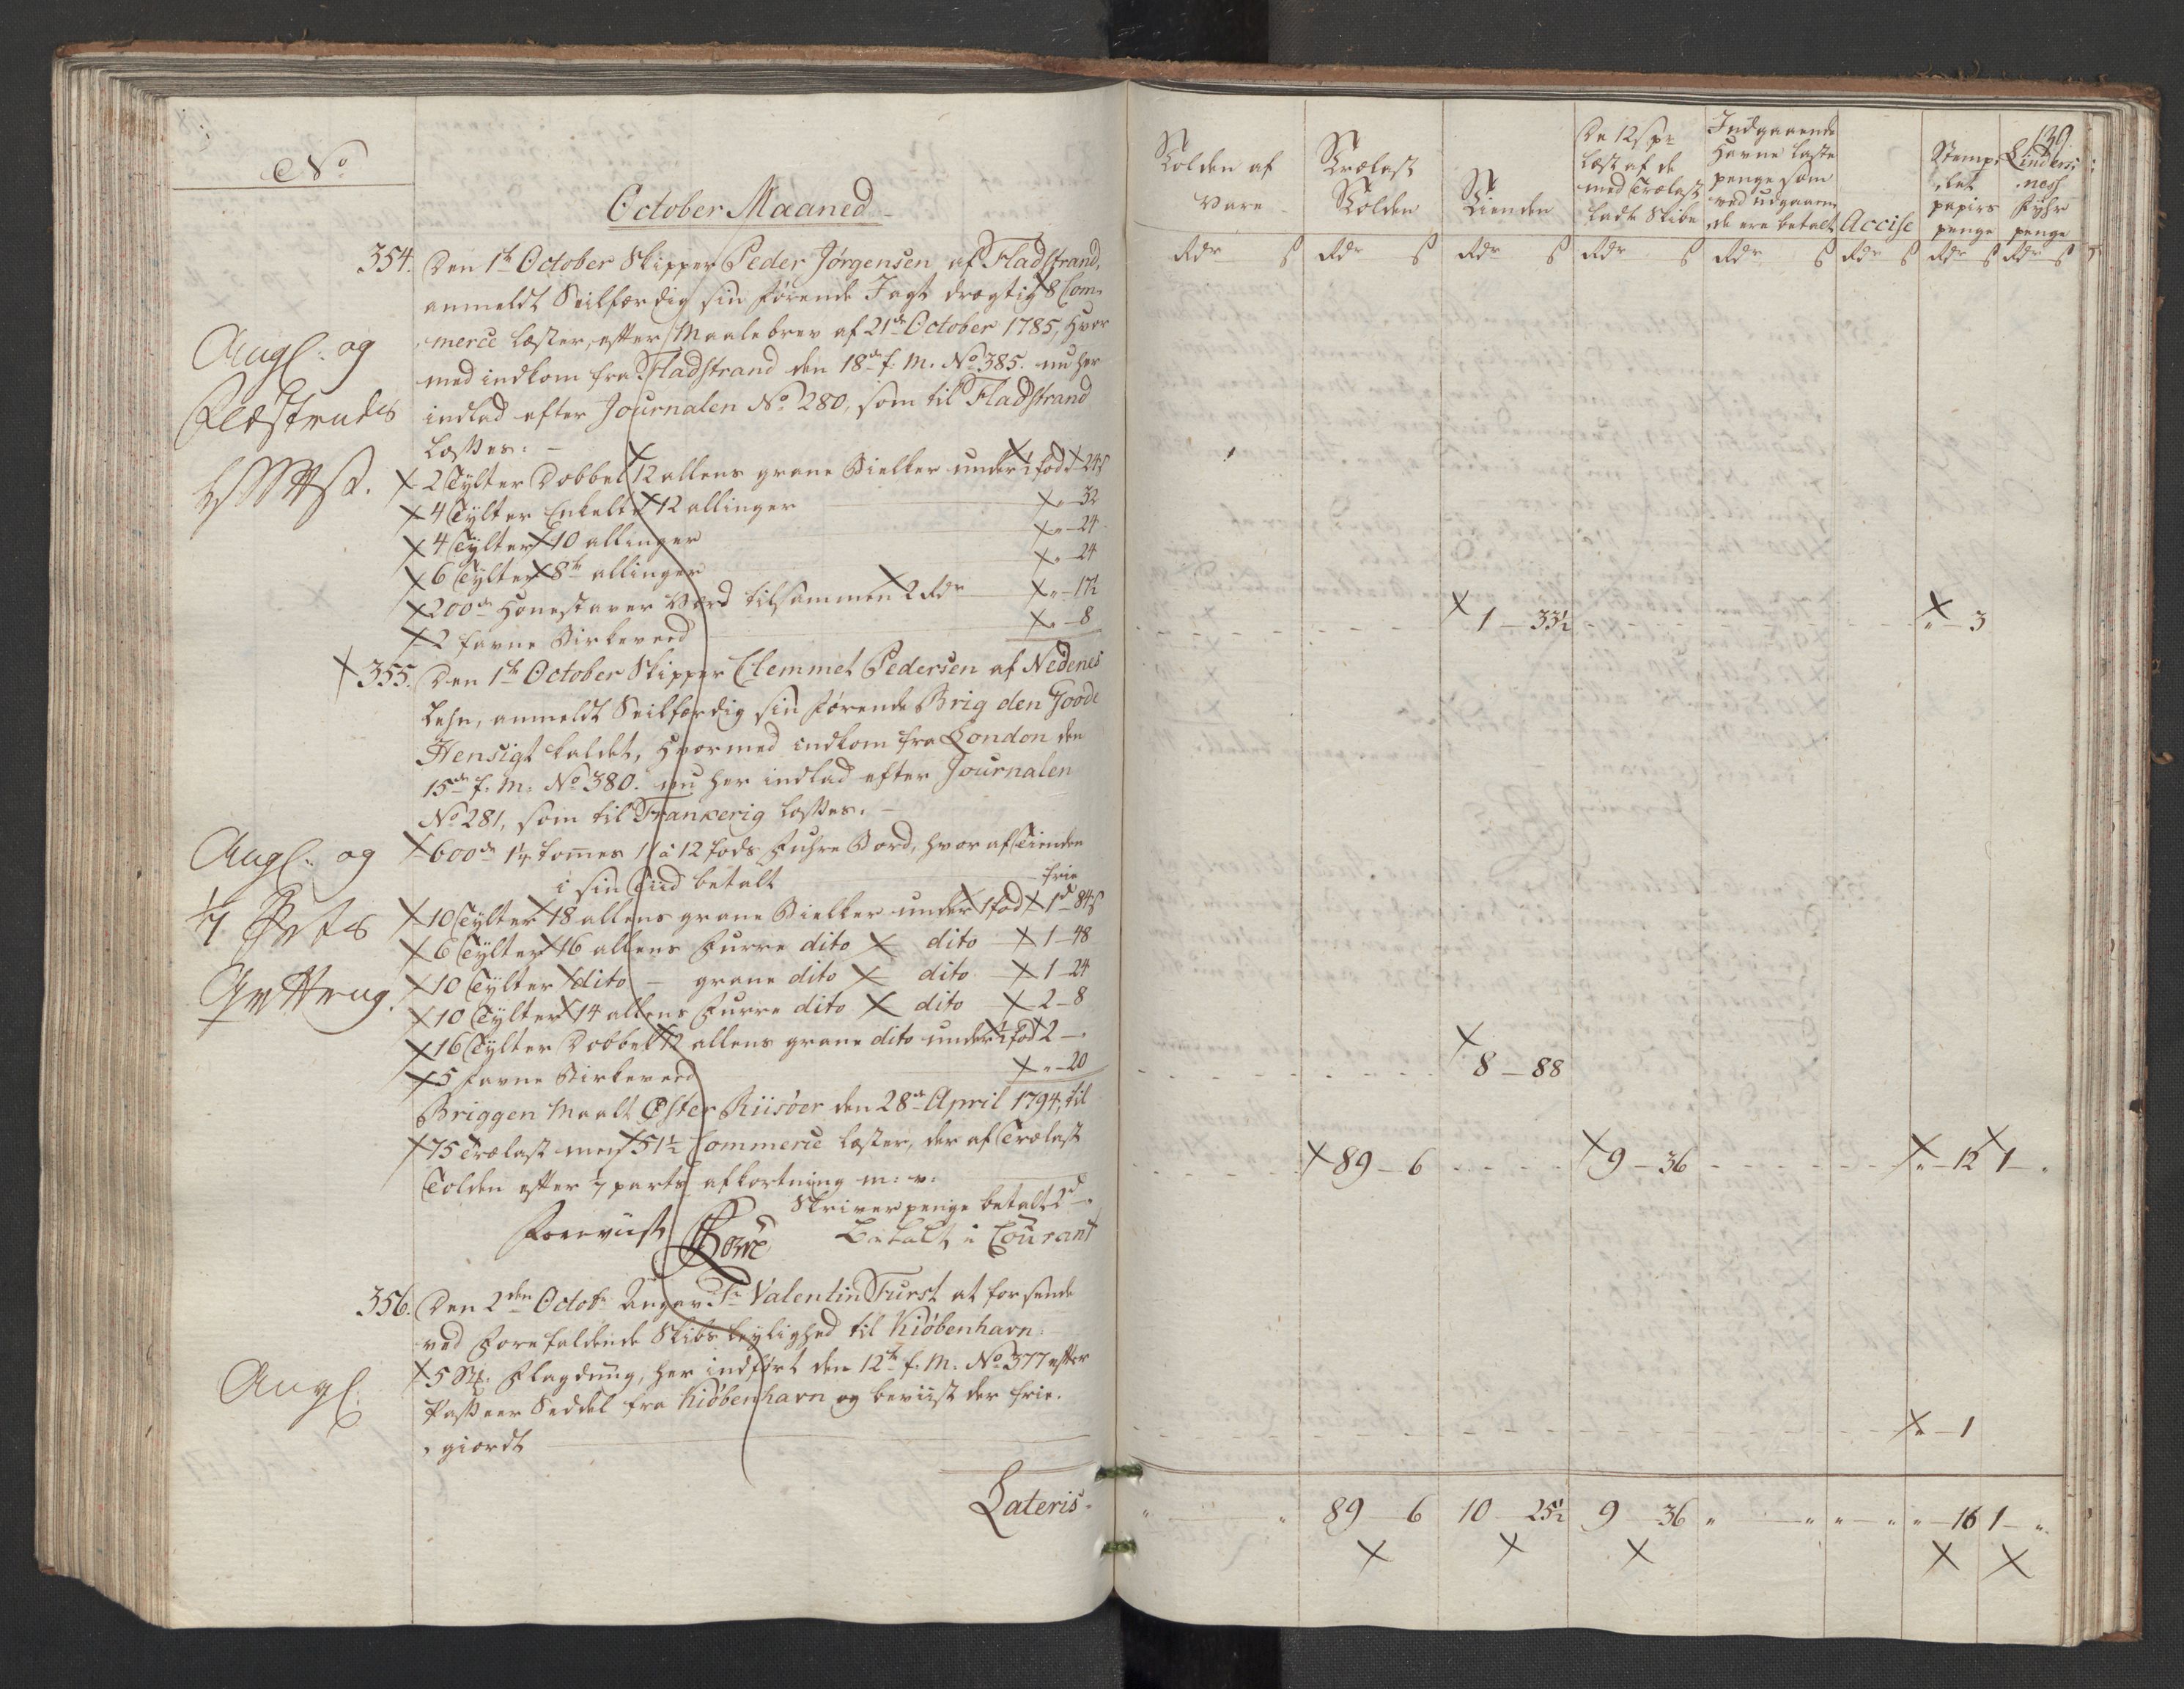 No
October Maaned
354. Den 1te October Skipper Peder Jørgensen af Fladstrand,
anmeldt Seilfærdig sin førende Jagt drægtig 8 Com-
merce læster, efter Maalebrev af 21de October 1785, hvor
med indkom fra Fladstrand den 18de f. M. No 385. nu her
indlad efter Journalen No 280, som til Fladstrand
losses:
Angl. og
2 Tylter Dobbel 12 allens grane Bielker under 1 fod 24 s
4 Tylter Enkelt 12 allinger 32
4 Tylter 10 allinger 24
6 Tylter 8te allinger 24
200de Hønestaver Værd tilsammen 2 Rdr 17½
2 favne Birkeveed 8
355. Den 1te October Skipper Clemmet Pedersen af Nedenes
Lehn, anmeldt Seilfærdig sin førende Brig den Goode
Hensigt kaldet, hvormed indkom fra London den
15de f. M. No 380. nu her indlad efter Journalen
No 281, som til Frankerig losses.
Angl. og
600de 1¼ tommes 11 à 12 fods Fuhre Bord, hvor af Tienden
i sin Tiid betalt frie
10 Tylter 18 allens grane Bielker under 1 fod 1d 84 s
6 Tylter 16 allens Furre dito dito 1-48
10 Tylter dito - grane dito dito 1-24
10 Tylter 14 allens Furre dito dito 2-8
16 Tylter Dobbel 12 allens grane dito under 1 fod 2 -
5 favne Birkeveed 20
Briggen Maalt Øster Riisøer den 28de April 1794, til
75 Trælast men 51½ Commerce læster, der af Trælast
Tolden efter 1/7 parts afkortning m: v:
Skriver penge betalt 2d
Betalt i Courant
356. Den 2den Octobr Angav Sr Valentin Furst at forsende
ved Forefaldende Skibs leylighed til Kiøbenhavn
Angl.
5 St. Flagdung, her indført den 12te f. M. No 377 efter
Passeer Seddel fra Kiøbenhavn og beviist der frie-
giordt
Lateris
139
Tolden af Vare
Trælast Tolden
Tienden
De 12 s pr læst af de med Trælast ladte Skibe
Indgaaende Havne laste penge som ved udgaaende ere betalt
Accise
Stemplet papiirs penge
Lindersness Fyhr penge
Rdr s Rdr s Rdr s Rdr s Rdr s Rdr s Rdr s Rdr s
1 - 33½ " - 3
8 - 88
89 - 6 9 - 36 " - 12 1 - "
" - 1
" " 89 - 6 10 - 25½ 9 - 36 " " " " " - 16 1 - "